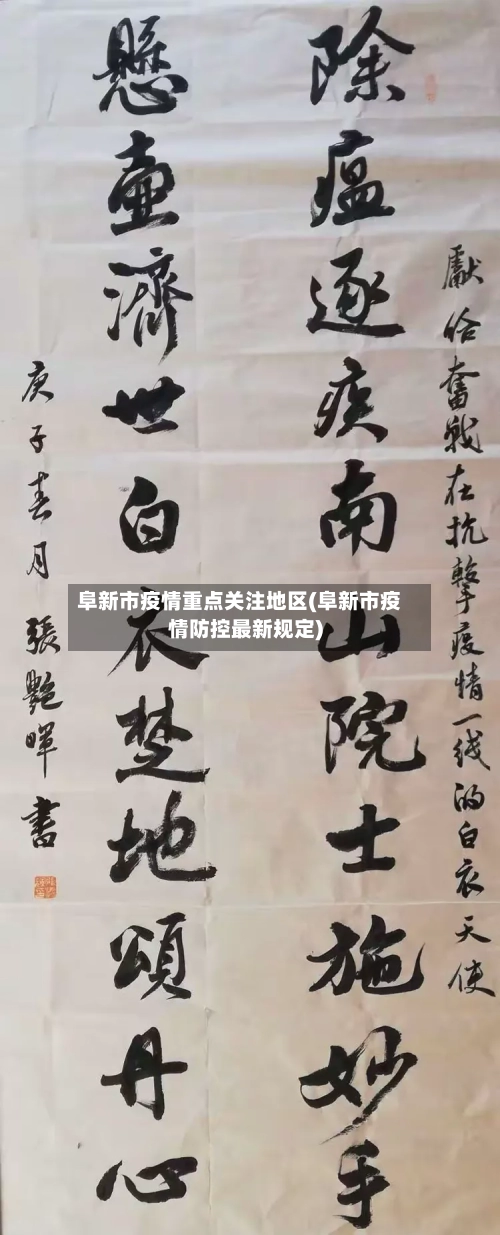 獻给奮戰在抗擊疫情一线的白衣天使
除瘟逐疾南山院士施妙手
懸壺濟世白衣楚地頌丹心
庚子春月張艷暉書
阜新市疫情重点关注地区(阜新市疫
情防控最新规定)